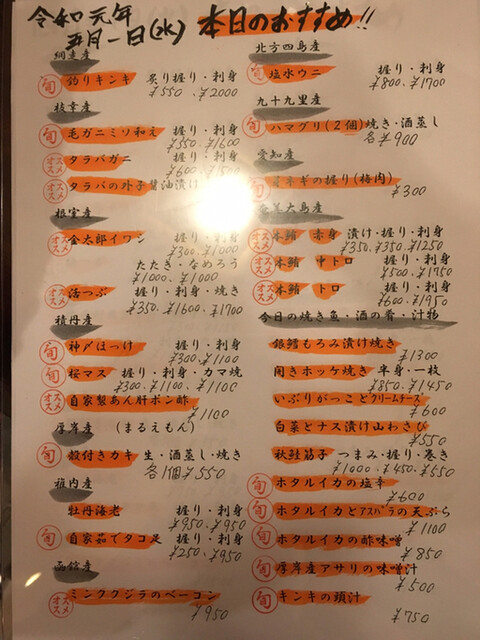 令和元年
五月一日(水) 本日のおすすめ!!
網走産
旬 釣りキンキ 炙り握り・刺身
¥550 ¥2000
枝幸産
旬 毛ガニミソ和え 握り・刺身
¥550 ¥1600
オススメ タラバガニ 握り・刺身
¥600 ¥1500
オススメ タラバの外子醤油漬け
根室産
オススメ 金太郎イワシ 握り・刺身
¥300 ¥1000
たたき・なめろう
¥1000 ¥1000
オススメ 活つぶ 握り・刺身・焼き
¥350 ¥1600 ¥1700
積丹産
旬 神戸ほっけ 握り・刺身
¥300 ¥1100
旬 桜マス 握り・刺身・カマ焼
¥300 ¥1100 ¥1100
オススメ 自家製あん肝ポン酢
¥1100
厚岸産 (まるえもん)
旬 殻付きカキ 生・酒蒸し・焼き
各1個 ¥550
稚内産
牡丹海老 握り・刺身
¥950 ¥950
旬 自家茹でタコ足 握り・刺身
¥250 ¥950
函館産
オススメ ミンククジラのベーコン
¥950
北方四島産
旬 塩水ウニ 握り・刺身
¥800 ¥1700
九十九里産
旬 ハマグリ(2個)焼き・酒蒸し
各¥900
愛知産
旬 メネギの握り(梅肉)
¥300
奄美大島産
オススメ 本鮪 赤身 漬け・握り・刺身
¥350 ¥350 ¥1250
オススメ 本鮪 中トロ 握り・刺身
¥500 ¥1750
オススメ 本鮪 トロ 握り・刺身
¥600 ¥1950
今日の焼き魚・酒の肴・汁物
銀鱈もろみ漬け焼き
¥1300
開きホッケ焼き 半身・一枚
¥850 ¥1450
いぶりがっことクリームチーズ
¥600
白菜とナス漬け山わさび
¥550
秋鮭筋子 つまみ・握り・巻き
¥1000 ¥450 ¥550
旬 ホタルイカの塩辛
¥600
旬 ホタルイカとアスパラの天ぷら
¥1100
旬 ホタルイカの酢味噌
¥850
旬 厚岸産アサリの味噌汁
¥500
旬 キンキの頭汁
¥750